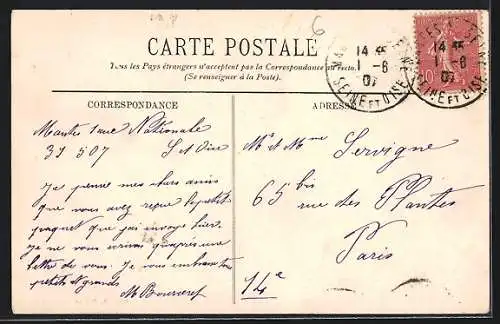 6
CARTE POSTALE
Tous les Pays étrangers n'acceptent pas la Correspondance au recto.
(Se renseigner à la Poste).
14 35
1 - 6
07
SEINE ET OISE
14 35
1 - 6
07
SEINE ET OISE
10
CORRESPONDANCE
ADRESSE
Mantes 1 rue Nationale
31 5 07 S et Oise
Je pense mes chers amis
que vous avez reçu le petit
paquet que j'ai envoyé hier.
Je ne vous écrirai qu'après une
lettre de vous. Je vous embrasse tous
petits et grands
M et Mme Servigne
65 bis
rue des Plantes
Paris
14e